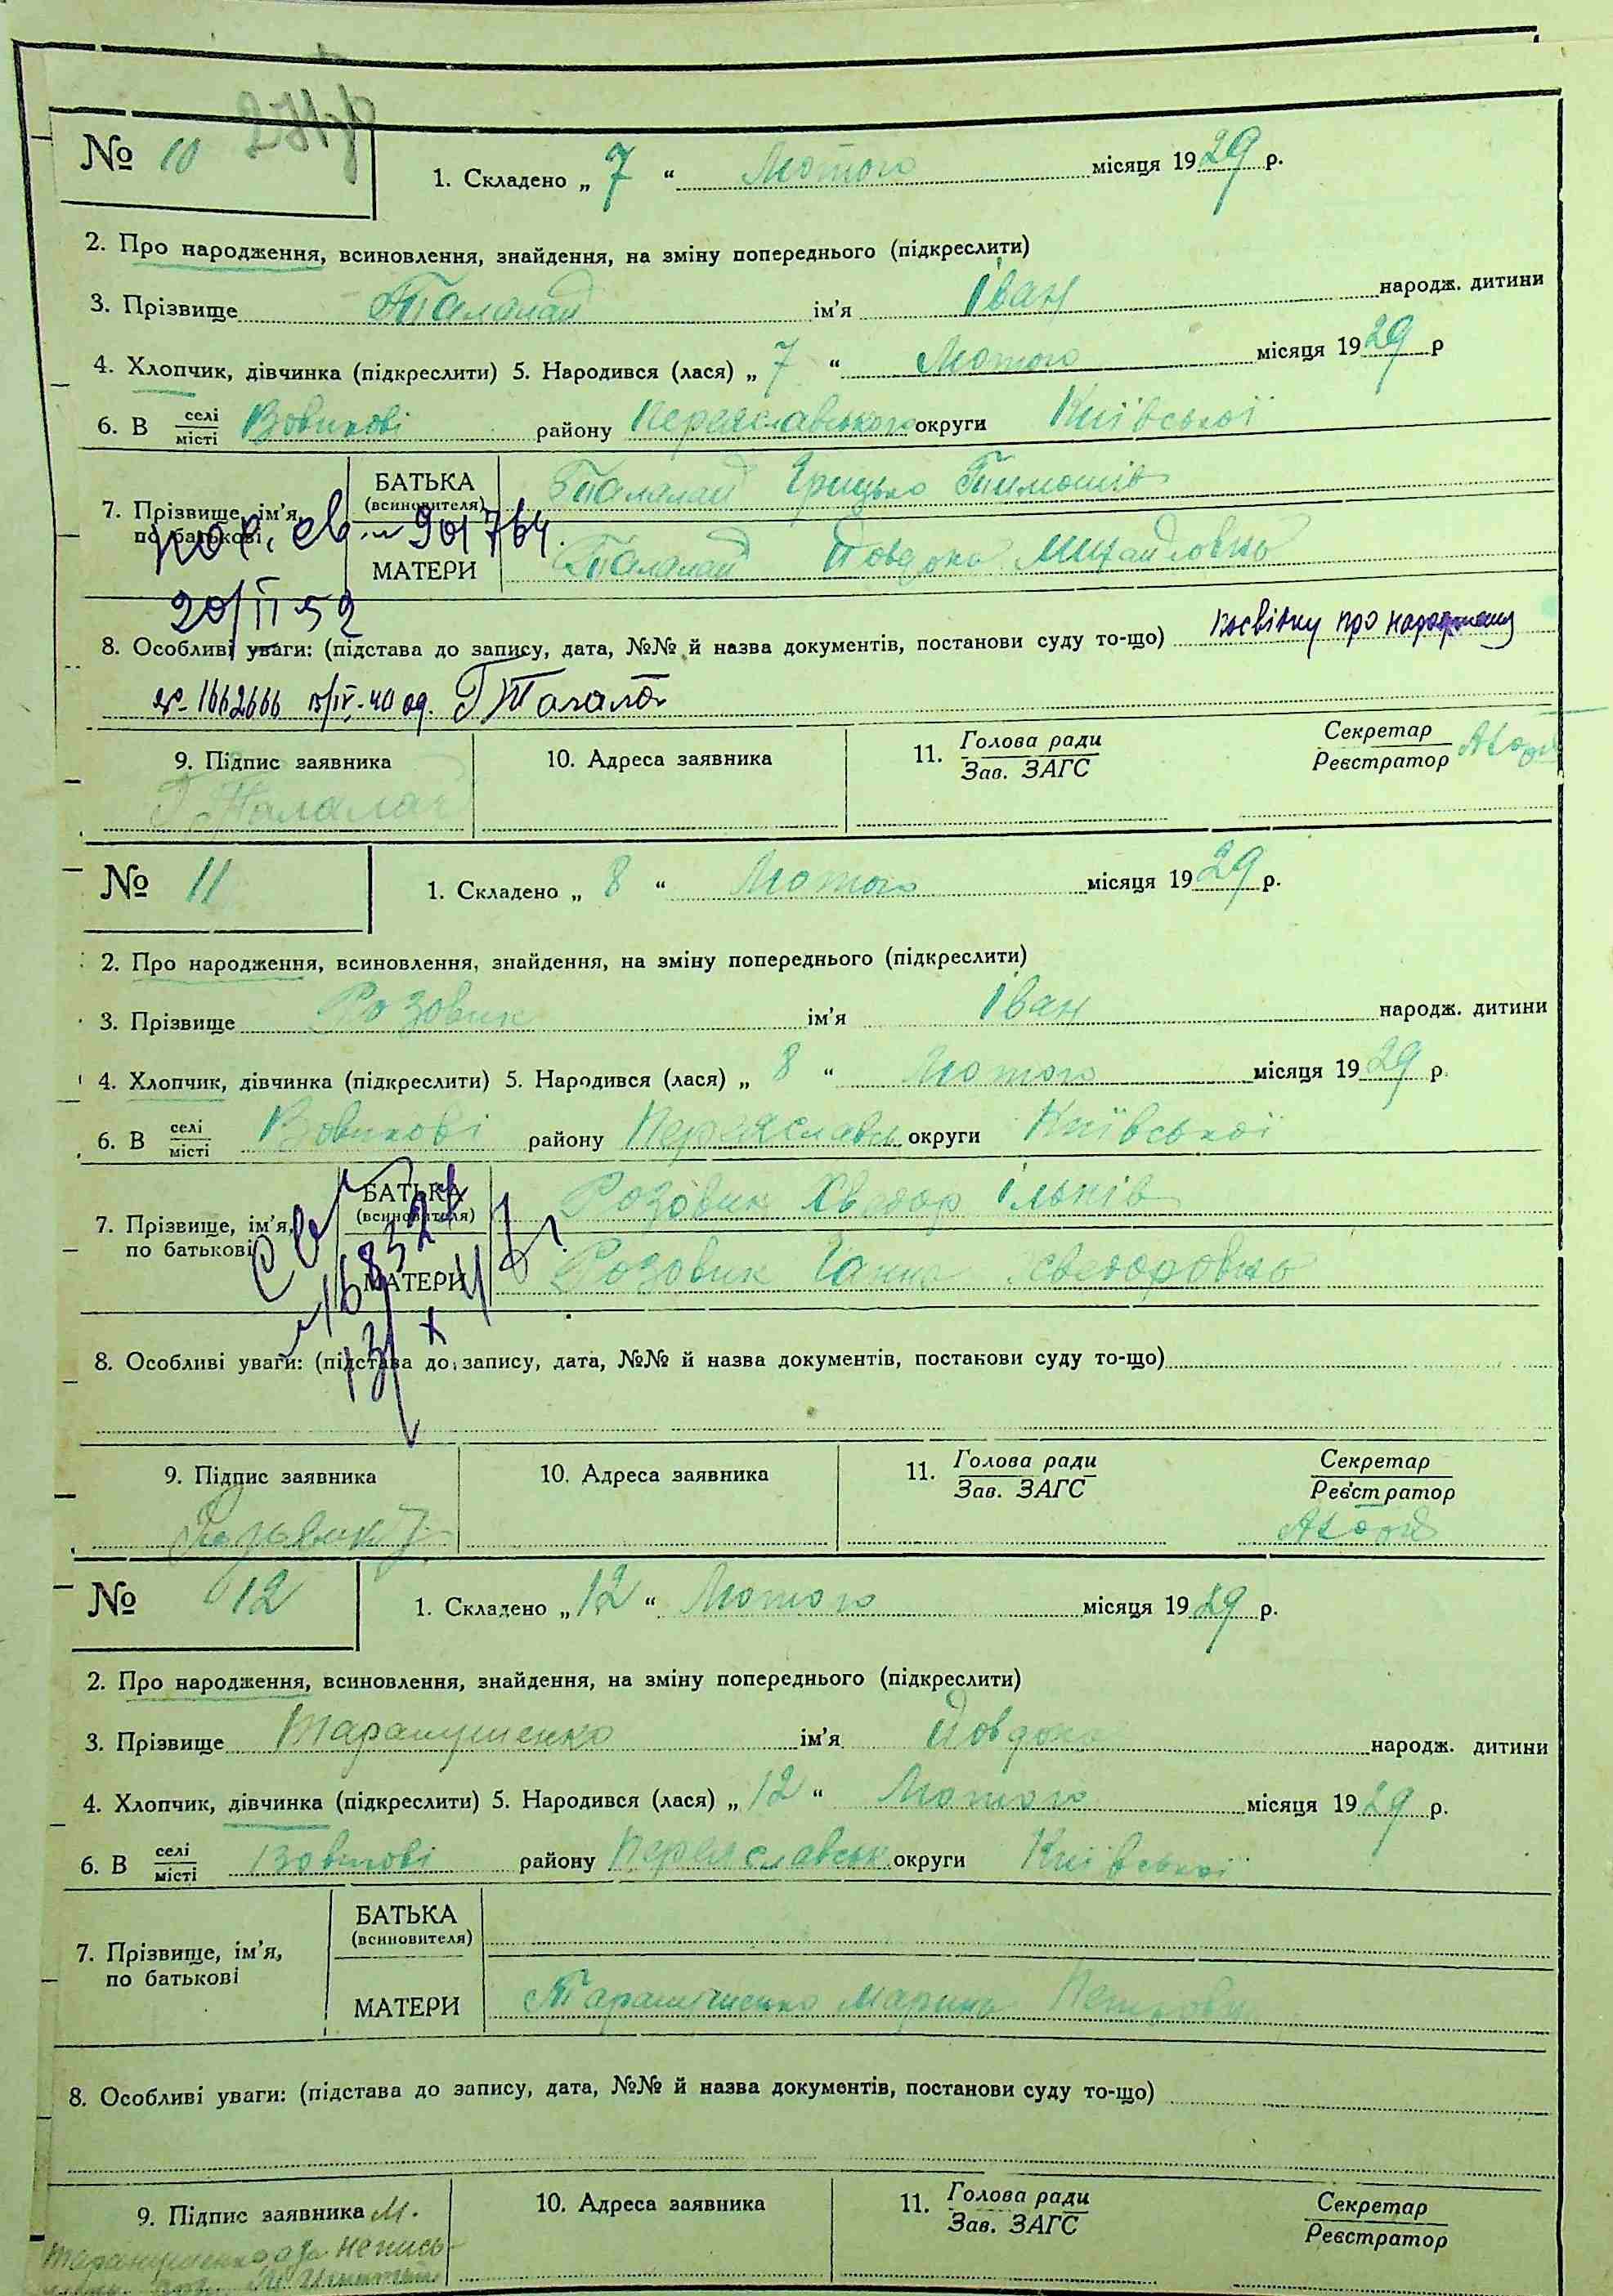 № 10
1. Складено „ 7 “ Лютого місяця 1929 р.
2. Про народження, всиновлення, знайдення, на зміну попереднього (підкреслити)
3. Прізвище Талалай ім’я Іван народж. дитини
4. Хлопчик, дівчинка (підкреслити) 5. Народився (лася) „ 7 “ Лютого місяця 1929 р
6. В селі/місті Вовчкові району Переяславського округи Київської
7. Прізвище, ім’я, по батькові
БАТЬКА (всиновителя) Талалай Грицько Тимошів
МАТЕРИ Талалай Йовдоха Михайловна
20/II 52
8. Особливі уваги: (підстава до запису, дата, №№ й назва документів, постанови суду то-що) посвідку про народження
№ 1662666 15/IV-40 од.
9. Підпис заявника
10. Адреса заявника
11. Голова ради / Зав. ЗАГС
Секретар / Реєстратор
Г. Талалай
№ 11
1. Складено „ 8 “ Лютого місяця 1929 р.
2. Про народження, всиновлення, знайдення, на зміну попереднього (підкреслити)
3. Прізвище Розовик ім’я Іван народж. дитини
4. Хлопчик, дівчинка (підкреслити) 5. Народився (лася) „ 8 “ Лютого місяця 1929 р.
6. В селі/місті Вовчкові району Переяславськ округи Київської
7. Прізвище, ім’я, по батькові
БАТЬКА (всиновителя) Розовик Хведор Ільків
МАТЕРИ Розовик Ганна Хведоровна
8. Особливі уваги: (підстава до запису, дата, №№ й назва документів, постанови суду то-що)
9. Підпис заявника
10. Адреса заявника
11. Голова ради / Зав. ЗАГС
Секретар / Реєстратор
№ 12
1. Складено „ 12 “ Лютого місяця 1929 р.
2. Про народження, всиновлення, знайдення, на зміну попереднього (підкреслити)
3. Прізвище Тарапушенко ім’я Йовдоха народж. дитини
4. Хлопчик, дівчинка (підкреслити) 5. Народився (лася) „ 12 “ Лютого місяця 1929 р.
6. В селі/місті Вовчкові району Переяславськ округи Київської
7. Прізвище, ім’я, по батькові
БАТЬКА (всиновителя)
МАТЕРИ Тарапушенко Марина
8. Особливі уваги: (підстава до запису, дата, №№ й назва документів, постанови суду то-що)
9. Підпис заявника М.
10. Адреса заявника
11. Голова ради / Зав. ЗАГС
Секретар / Реєстратор